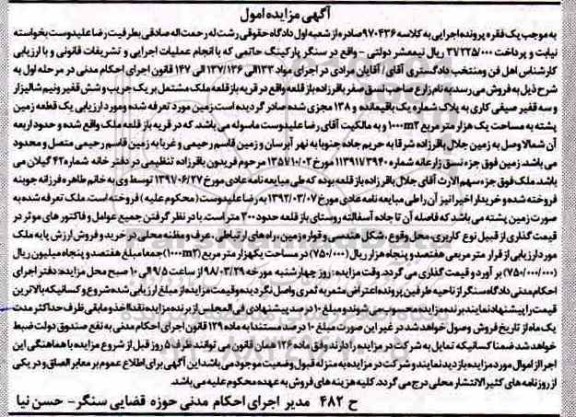 آگهی مزایده اموال
به موجب یک فقره پرونده اجرایی به کلاسه ۹۷۰۴۳۶ صادره از شعبه اول دادگاه حقوقی رشت له رحمت اله صادقی بطرفیت رضا علیدوست بخواسته
نیابت و پرداخت ۳۷/۲۲۵/۰۰۰ ریال نیمعشر دولتی - واقع در سنگر پارکینگ حاتمی که با انجام عملیات اجرایی و تشریفات قانونی و با ارزیابی
کارشناس اهل فن ومنتخب دادگستری آقای / آقایان مرادی در اجرای مواد ۱۳۳الی ۱۳۷/۱۳۶ الی ۱۴۷ قانون اجرای احکام مدنی در مرحله اول به
شرح ذیل به فروش می رسد به نام زارع صاحب نسق صفر باقرزاده باز قلعه واقع در قریه باز قلعه ملک مشتمل بر یک جریب وشش قفیز ونیم شالیزار
و سه قفیر صیفی کاری به پلاک شماره یک باقیمانده و ۱۳۸ مجزی شده صادر گردیده است زمین مورد تعرفه شده ومورد ارزیابی یک قطعه زمین
پشته به مساحت یک هزار متر مربع ۱۰۰۰m۲ و به مالکیت آقای رضا علیدوست ماسوله می باشد که در قریه باز قلعه ملک واقع شده و حدود اربعه
آن شمالا وصل به زمین جلال باقرزاده شرقا به حریم جاده جنوبا به نهر آبرسان و زمین قاسم رحیمی و غربا به زمین قاسم رحیمی متصل و محدود
می باشد زمین فوق جزء نسق زارعانه شماره ۱۱۳۹۱۷۳۹۴۰ مورخ ۱۳۵۷/۱۰/۰۲ مرحوم فریدون باقرزاده تنظیمی در دفتر خانه شماره ۴۲ گیلان می
باشد ملک فوق جزء سهم الارث آقای جلال باقرزاده باز قلعه بوده که طی مبایعه نامه عادی مورخ ۱۳۹۰/۶/۲۷ توسط وی به خانم طاهره فرزانه جوبنه
فروخته شده و خریدار اخیر انیز آن را طی مبایعه نامه عادی مورخ ۱۳۹۲/۰۳/۰۷ به رضا علیدوست (محکوم علیه) فروخته است. ملک تعرفه شده به
صورت زمین پشته می باشد که فاصله آن تا جاده آسفالته روستای باز قلعه حدود ۲۰۰ متر است. با در نظر گرفتن جمیع عوامل و فاکتور های موثر در
قیمت گذاری از قبیل نوع کاربری، محل وقوع، شکل هندسی و قواره زمین، راه های ارتباطی، عرف و مظنه محلی در خرید و فروش ارزش پایه ملک
مورد ارزیابی از قرار متر مربعی هفتصد و پنجاه هزار ریال (۷۵۰/۰۰۰) در مساحت یکهزار متر مربع (۱۰۰۰m۲) جمعا مبلغ هفتصد و پنجاه میلیون ریال
(۷۵۰/۰۰۰/۰۰۰) بر آورد و قیمت گذاری می گردد. وقت مزایده: روز چهارشنبه مورخه ۹۸/۰۳/۲۹ از ساعت ۹/۵ الی ۱۰ صبح محل مزایده: دفتر اجرای
احکام مدنی دادگاه سنگر از ناحیه طرفین پرونده اعتراض مثمر به ثمری واصل نگردیده وقیمت مزایده از مبلغ ارزیابی شده شروع و کسانیکه بالاترین
قیمت را پیشنهاد نمایند برنده مزایده محسوب می شوند و مبلغ ۱۰ درصد پیشنهادی فی المجلس از برنده مزایده نقدا اخذ و مابقی ظرف حداکثر مدت
یک ماه از تاریخ فروش وصول خواهد شد در غیر این صورت مبلغ ۱۰ درصد مستندا به ماده ۱۲۹ قانون اجرای احکام مدنی به نفع صندوق دولت ضبط
خواهد شد ضمنا کسانیکه تمایل به شرکت در مزایده را دارند وفق ماده ۱۲۶ همان قانون می توانند ظرف ۵ روز قبل از شروع مزایده با هماهنگی این
اجرا از اموال مورد مزایده بازدید نمایند و شرکت در مزایده به منزله قبول وضعیت موجود می باشد این آگهی برای اطلاع عموم بر معابر الصاق و در یکی
از روزنامه های کثیر الانتشار محلی درج می گردد. کلیه هزینه های فروش به عهده محکوم علیه می باشد.
ح ۴۸۲ مدیر اجرای احکام مدنی حوزه قضایی سنگر- حسن نیا